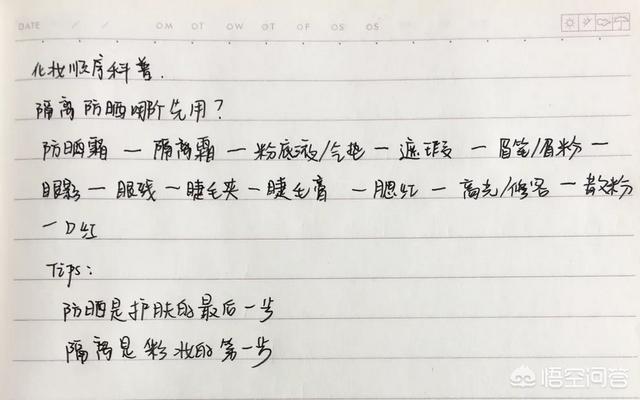 DATE / / MO MT OW TT OF OS OS
化妆顺序科普.
隔离 防晒哪个先用?
防晒霜 — 隔离霜 — 粉底液/气垫 — 遮瑕 — 眉笔/眉粉 —
眼影 — 眼线 — 睫毛夹 — 睫毛膏 — 腮红 — 高光/修容 — 散粉
— 口红
Tips:
防晒是护肤的最后一步
隔离是彩妆的第一步
悟空问答